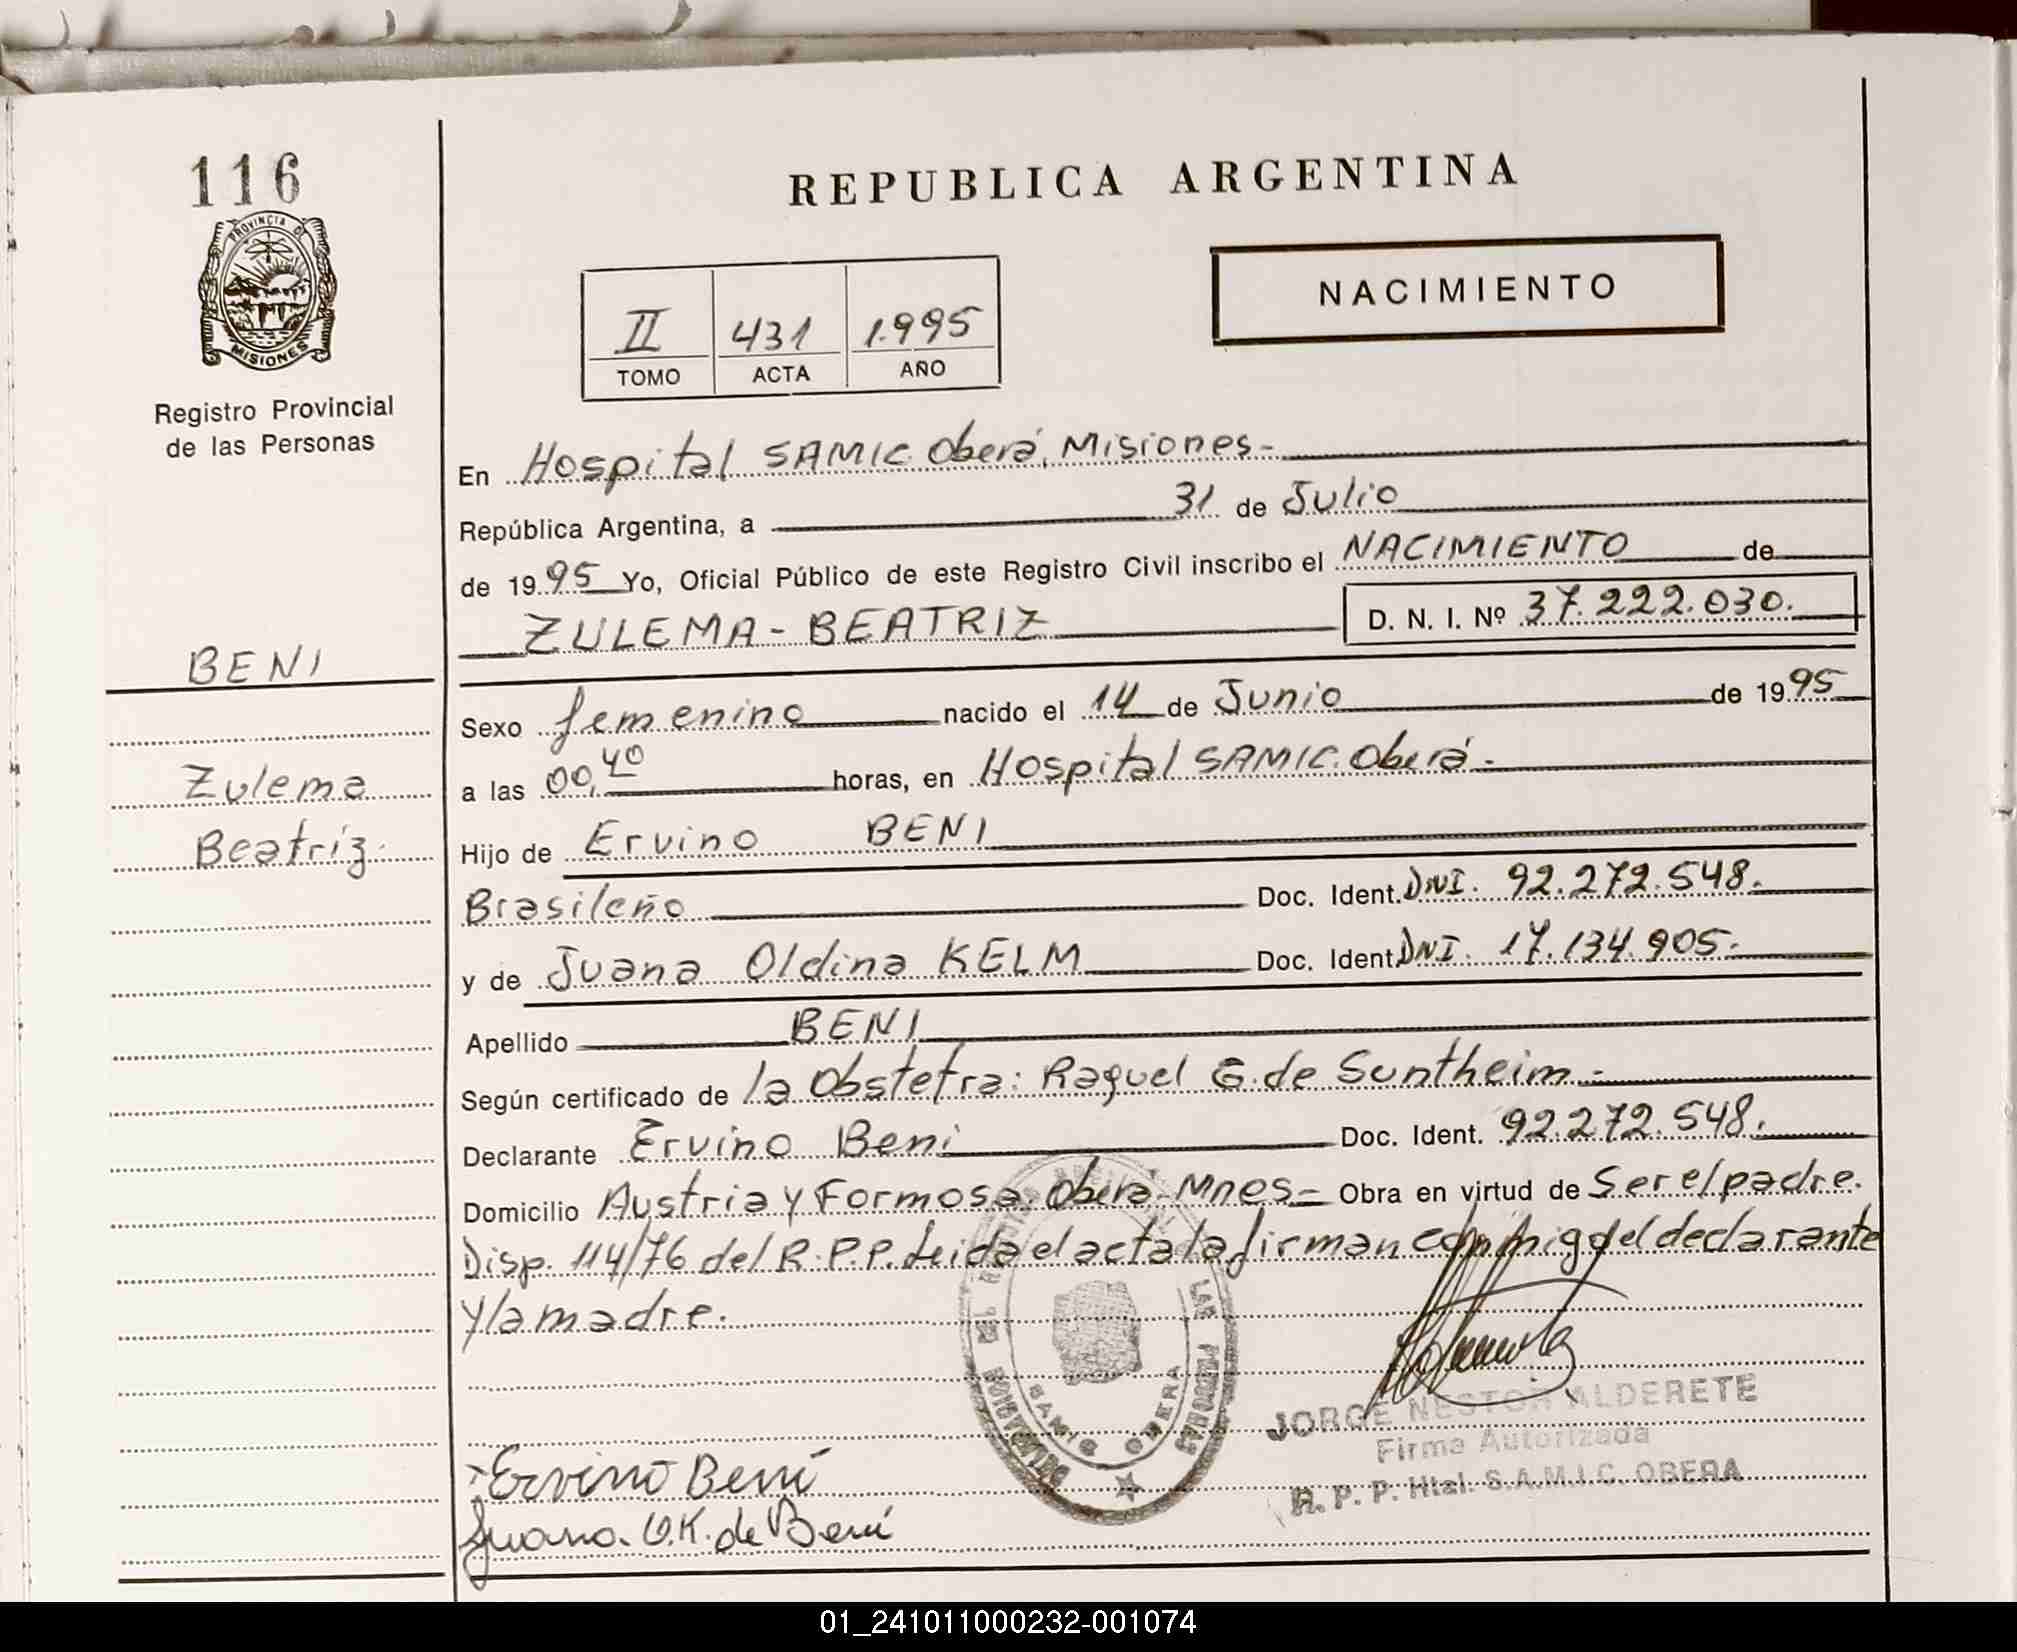 116
PROVINCIA DE
MISIONES
Registro Provincial
de las Personas
BENI
Zulema
Beatriz
REPUBLICA ARGENTINA
NACIMIENTO
II 431 1.995
TOMO ACTA AÑO
En Hospital SAMIC. Oberá, Misiones-
República Argentina, a 31 de Julio
de 1995 Yo, Oficial Público de este Registro Civil inscribo el NACIMIENTO de
ZULEMA-BEATRIZ D. N. I. Nº 37.222.030.
Sexo femenino nacido el 14 de Junio de 1995
a las 00,40 horas, en Hospital SAMIC. Oberá-
Hijo de Ervino BENI
Brasileño Doc. Ident. DNI. 92.272.548.
y de Juana Oldina KELM Doc. Ident. DNI. 17.134.905.
Apellido BENI
Según certificado de la Obstetra: Raquel G. de Suntheim-
Declarante Ervino Beni Doc. Ident. 92.272.548.
Domicilio Austria y Formosa. Oberá-Mnes- Obra en virtud de Ser el padre.
Disp. 114/76 del R.P.P. Leida el acta la firman conmigo el declarante
y la madre.
LAS PERSONAS
SAMIC OBERA
JORGE NESTOR ALDERETE
Firma Autorizada
R. P. P. Htal. S.A.M.I.C. OBERA
Ervino Beni
Juana. O.K. de Beni
01_241011000232-001074